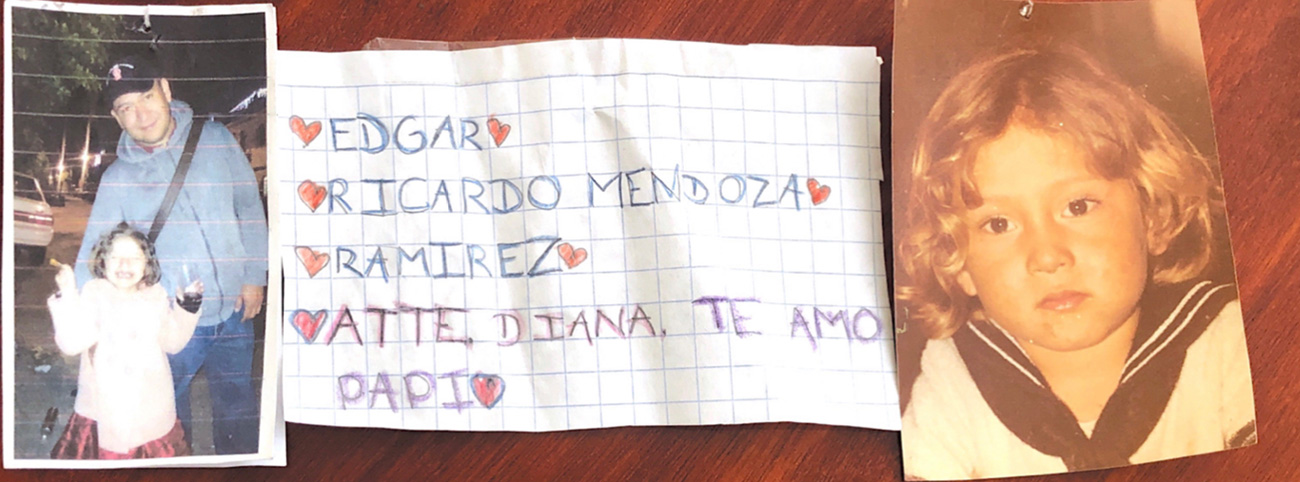 EDGAR
RICARDO MENDOZA
RAMIREZ
ATTE. DIANA. TE AMO
PAPI